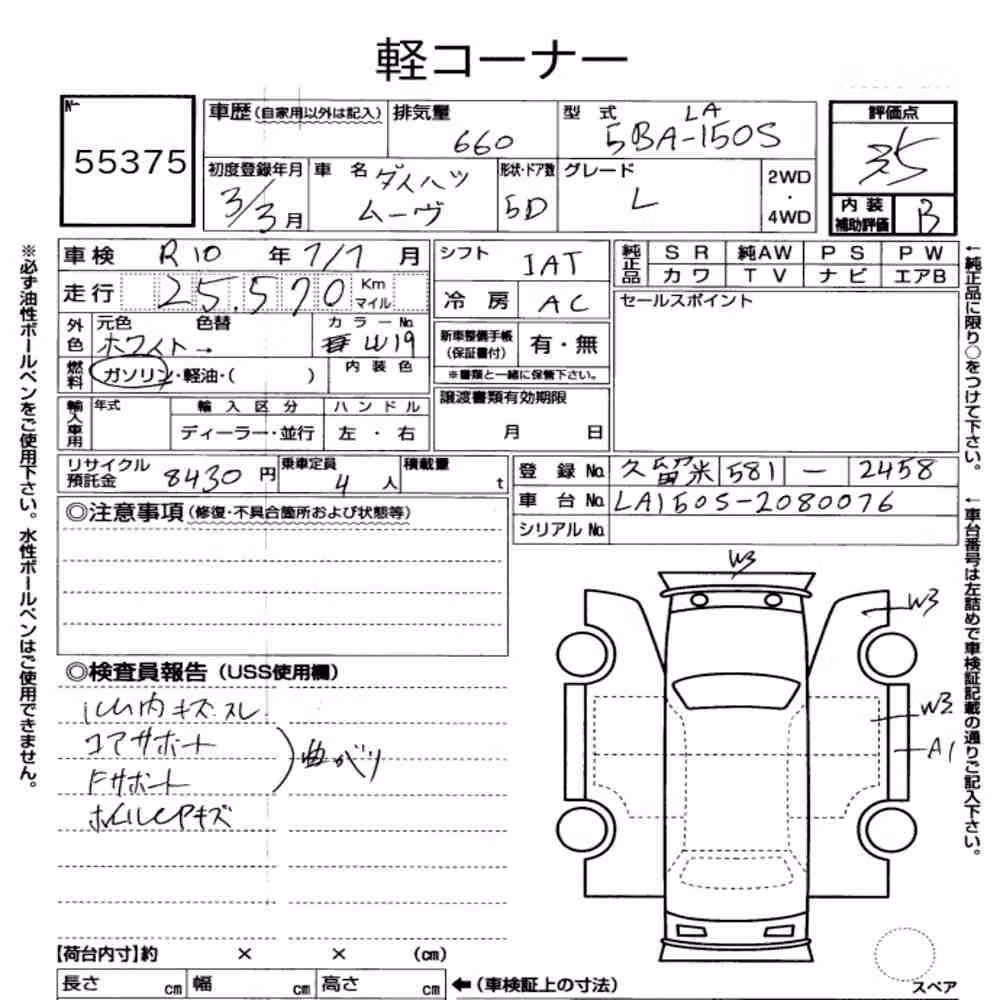 軽コーナー
№
55375
車歴(自家用以外は記入)
排気量
660
型 式
LA
5BA-150S
評価点
3.5
初度登録年月
3/3月
車 名
ダイハツ
ムーヴ
形状・ドア数
5D
グレード
L
2WD
・
4WD
内 装
補助評価
B
車検
R10 年 7/7 月
シフト
IAT
純正品
SR
純AW
PS
PW
カワ
TV
ナビ
エアB
走行
25,570
Km
マイル
冷 房
AC
セールスポイント
外色
元色
色替
ホワイト→
カラーNo.
W19
新車整備手帳
(保証書付)
有・無
※書類と一緒に保管下さい。
燃料
ガソリン・軽油・( )
内 装 色
輸入車用
年式
輸 入 区 分
ハ ン ド ル
ディーラー・並行
左 ・ 右
譲渡書類有効期限
月 日
リサイクル
預託金
8430円
乗車定員
4人
積載量
t
登 録 No.
久留米 581 - 2458
車 台 No.
LA150S-2080076
シリアル No.
◎注意事項(修復・不具合箇所および状態等)
◎検査員報告(USS使用欄)
内キズスレ
コアサポート
Fサポート
曲がり
キズ
W3
W3
W3
A1
スペア
【荷台内寸】約 × × (cm)
長さ cm
幅 cm
高さ cm
←(車検証上の寸法)
※必ず油性ボールペンをご使用下さい。水性ボールペンはご使用できません。
←純正品に限り○をつけて下さい。
←車台番号は左詰めで車検証記載の通りご記入下さい。